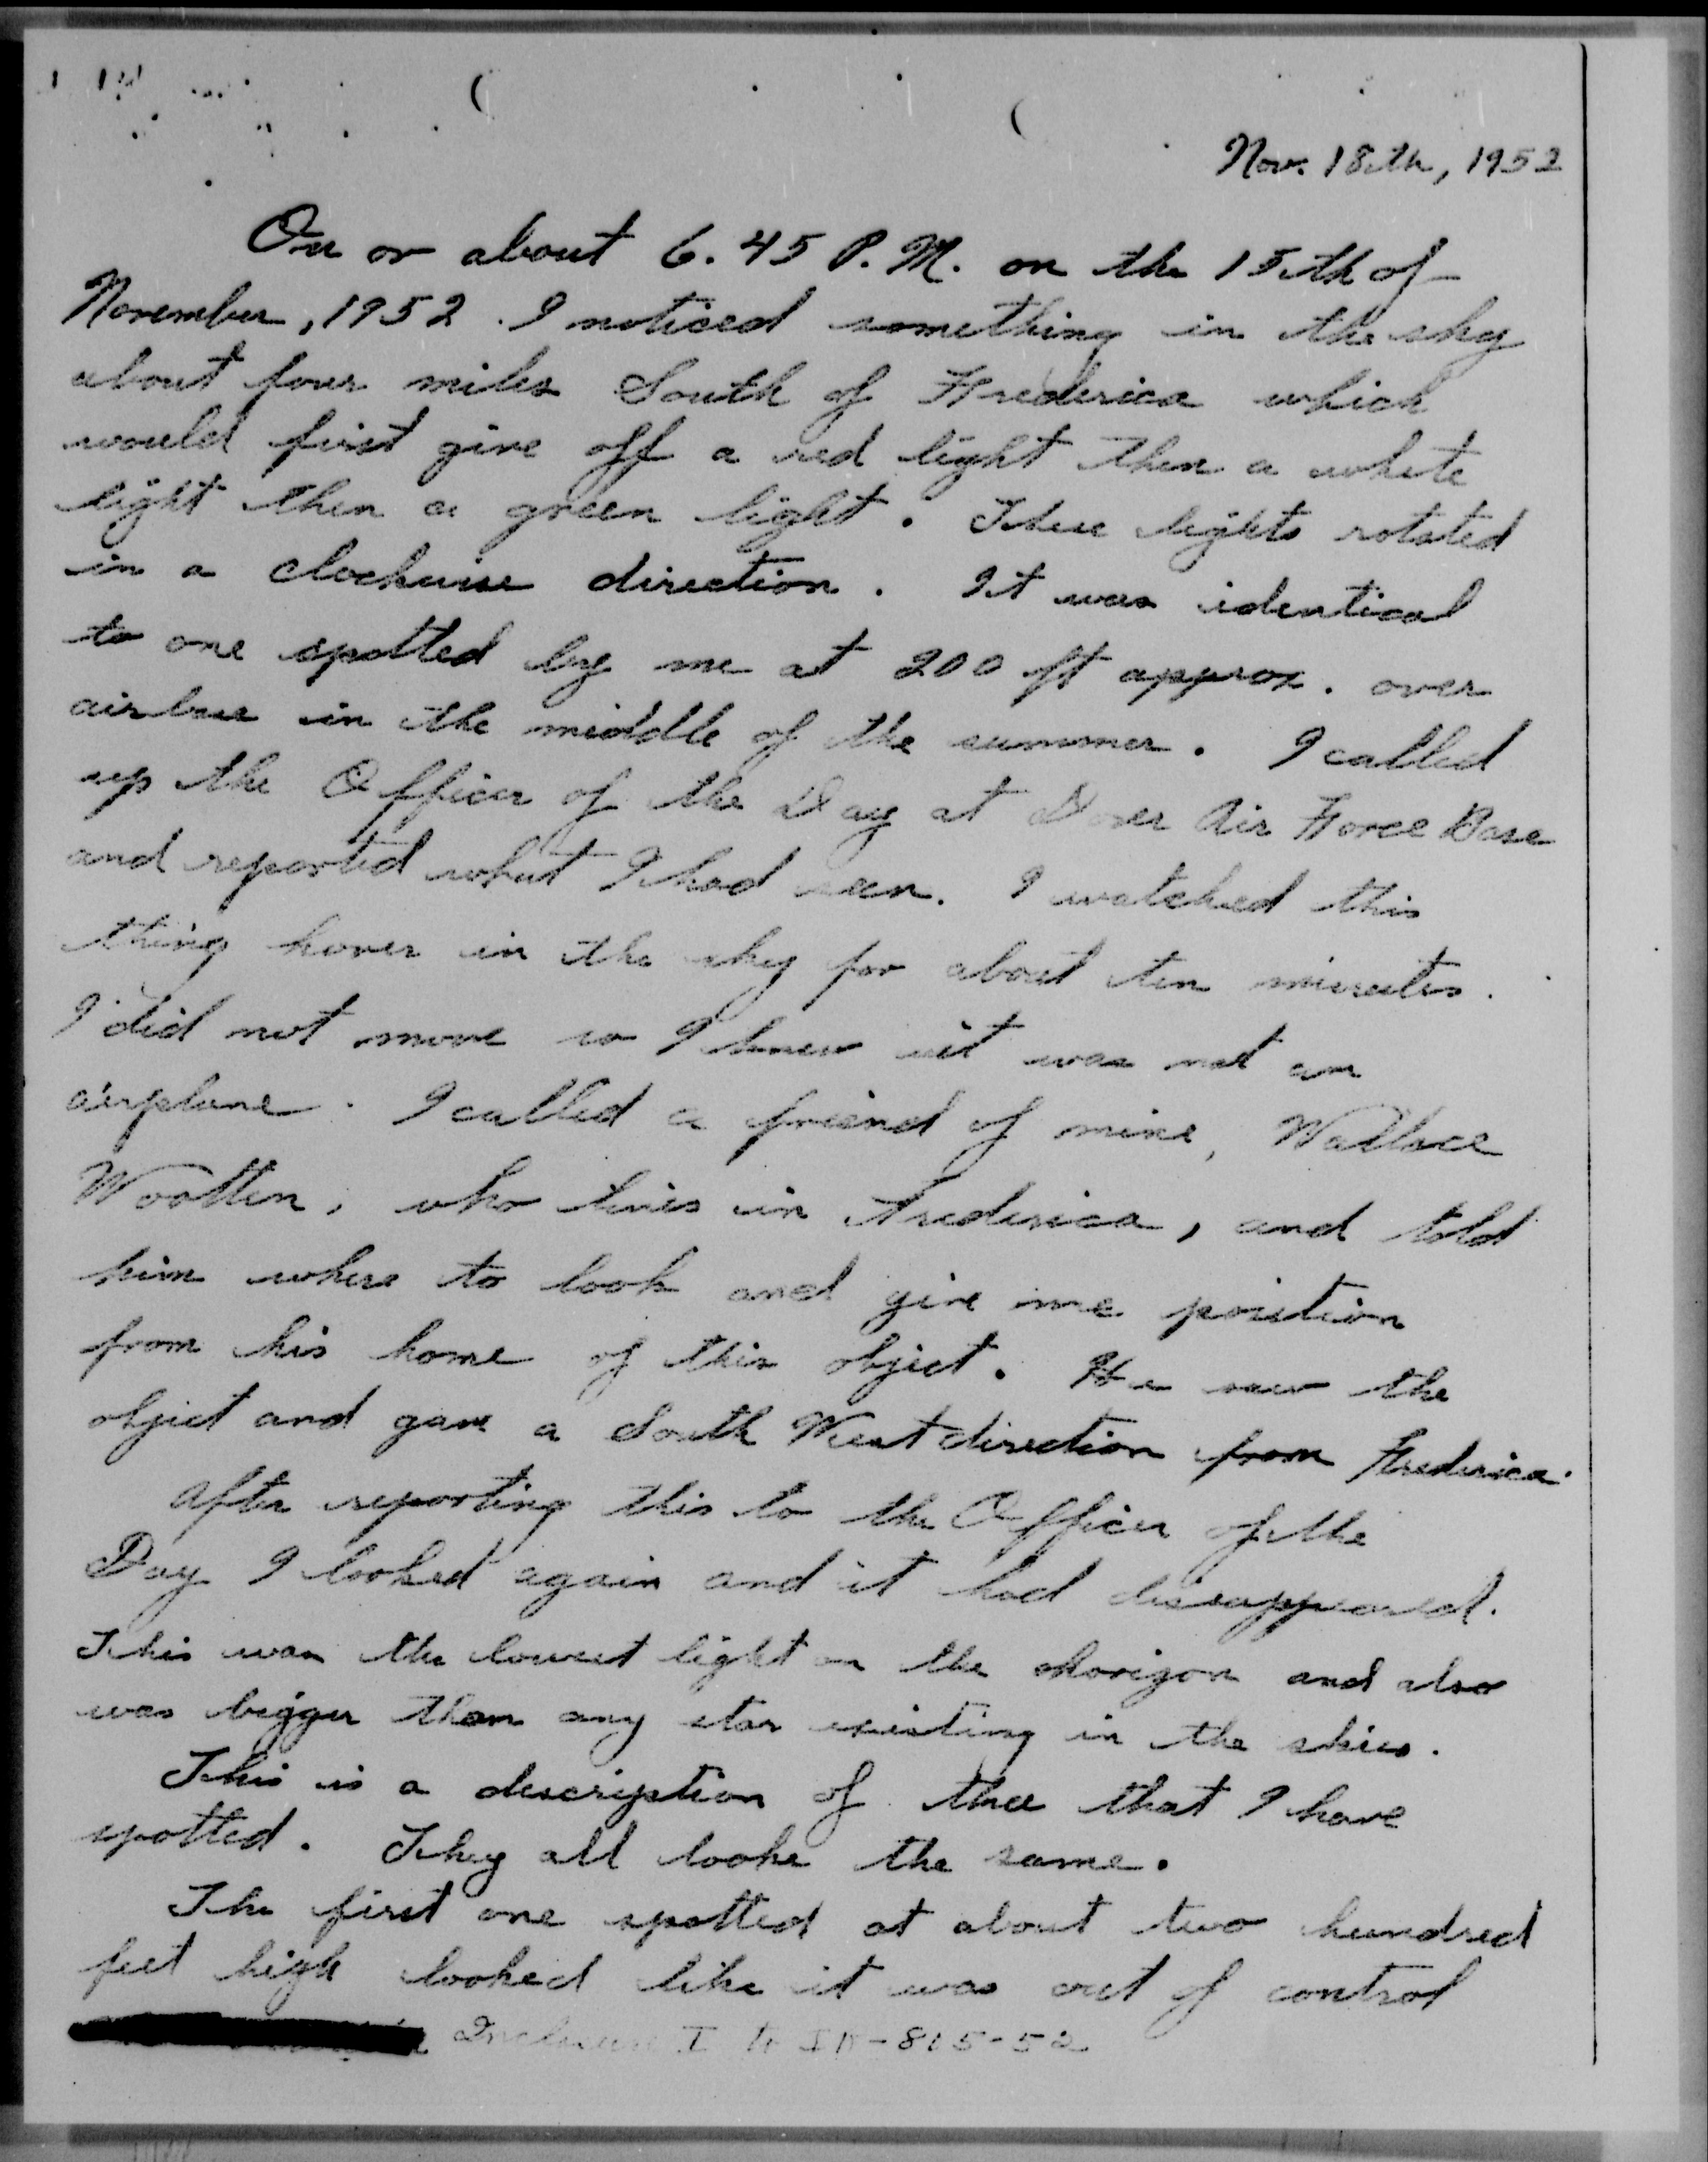 Nov. 18th, 1952
On or about 6.45 P.M. on the 15th of
November, 1952. I noticed something in the sky
about four miles South of Frederica which
would first give off a red light then a white
light then a green light. These lights rotated
in a clockwise direction. It was identical
to one spotted by me at 200 ft approx. over
airbase in the middle of the summer. I called
up the Officer of the Day at Dover Air Force Base
and reported what I had seen. I watched this
thing hover in the sky for about ten minutes.
I did not move so I knew it was not an
airplane. I called a friend of mine, Wallace
Wootten, who lives in Frederica, and told
him where to look and give me position
from his home of this object. He saw the
object and gave a South West direction from Frederica.
After reporting this to the Officer of the
Day I looked again and it had disappeared.
This was the lowest light on the horizon and also
was bigger than any star existing in the skies.
This is a description of three that I have
spotted. They all looke the same.
The first one spotted at about two hundred
feet high looked like it was out of control
Inclosure I to IR-815-52